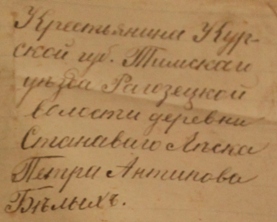 Крестьянина Кур-
ской губ. Тимскаи
уѣзда Рагозецкой
волости деревни
Станаваго Лѣска
Петра Антипова
Бѣлыхъ.